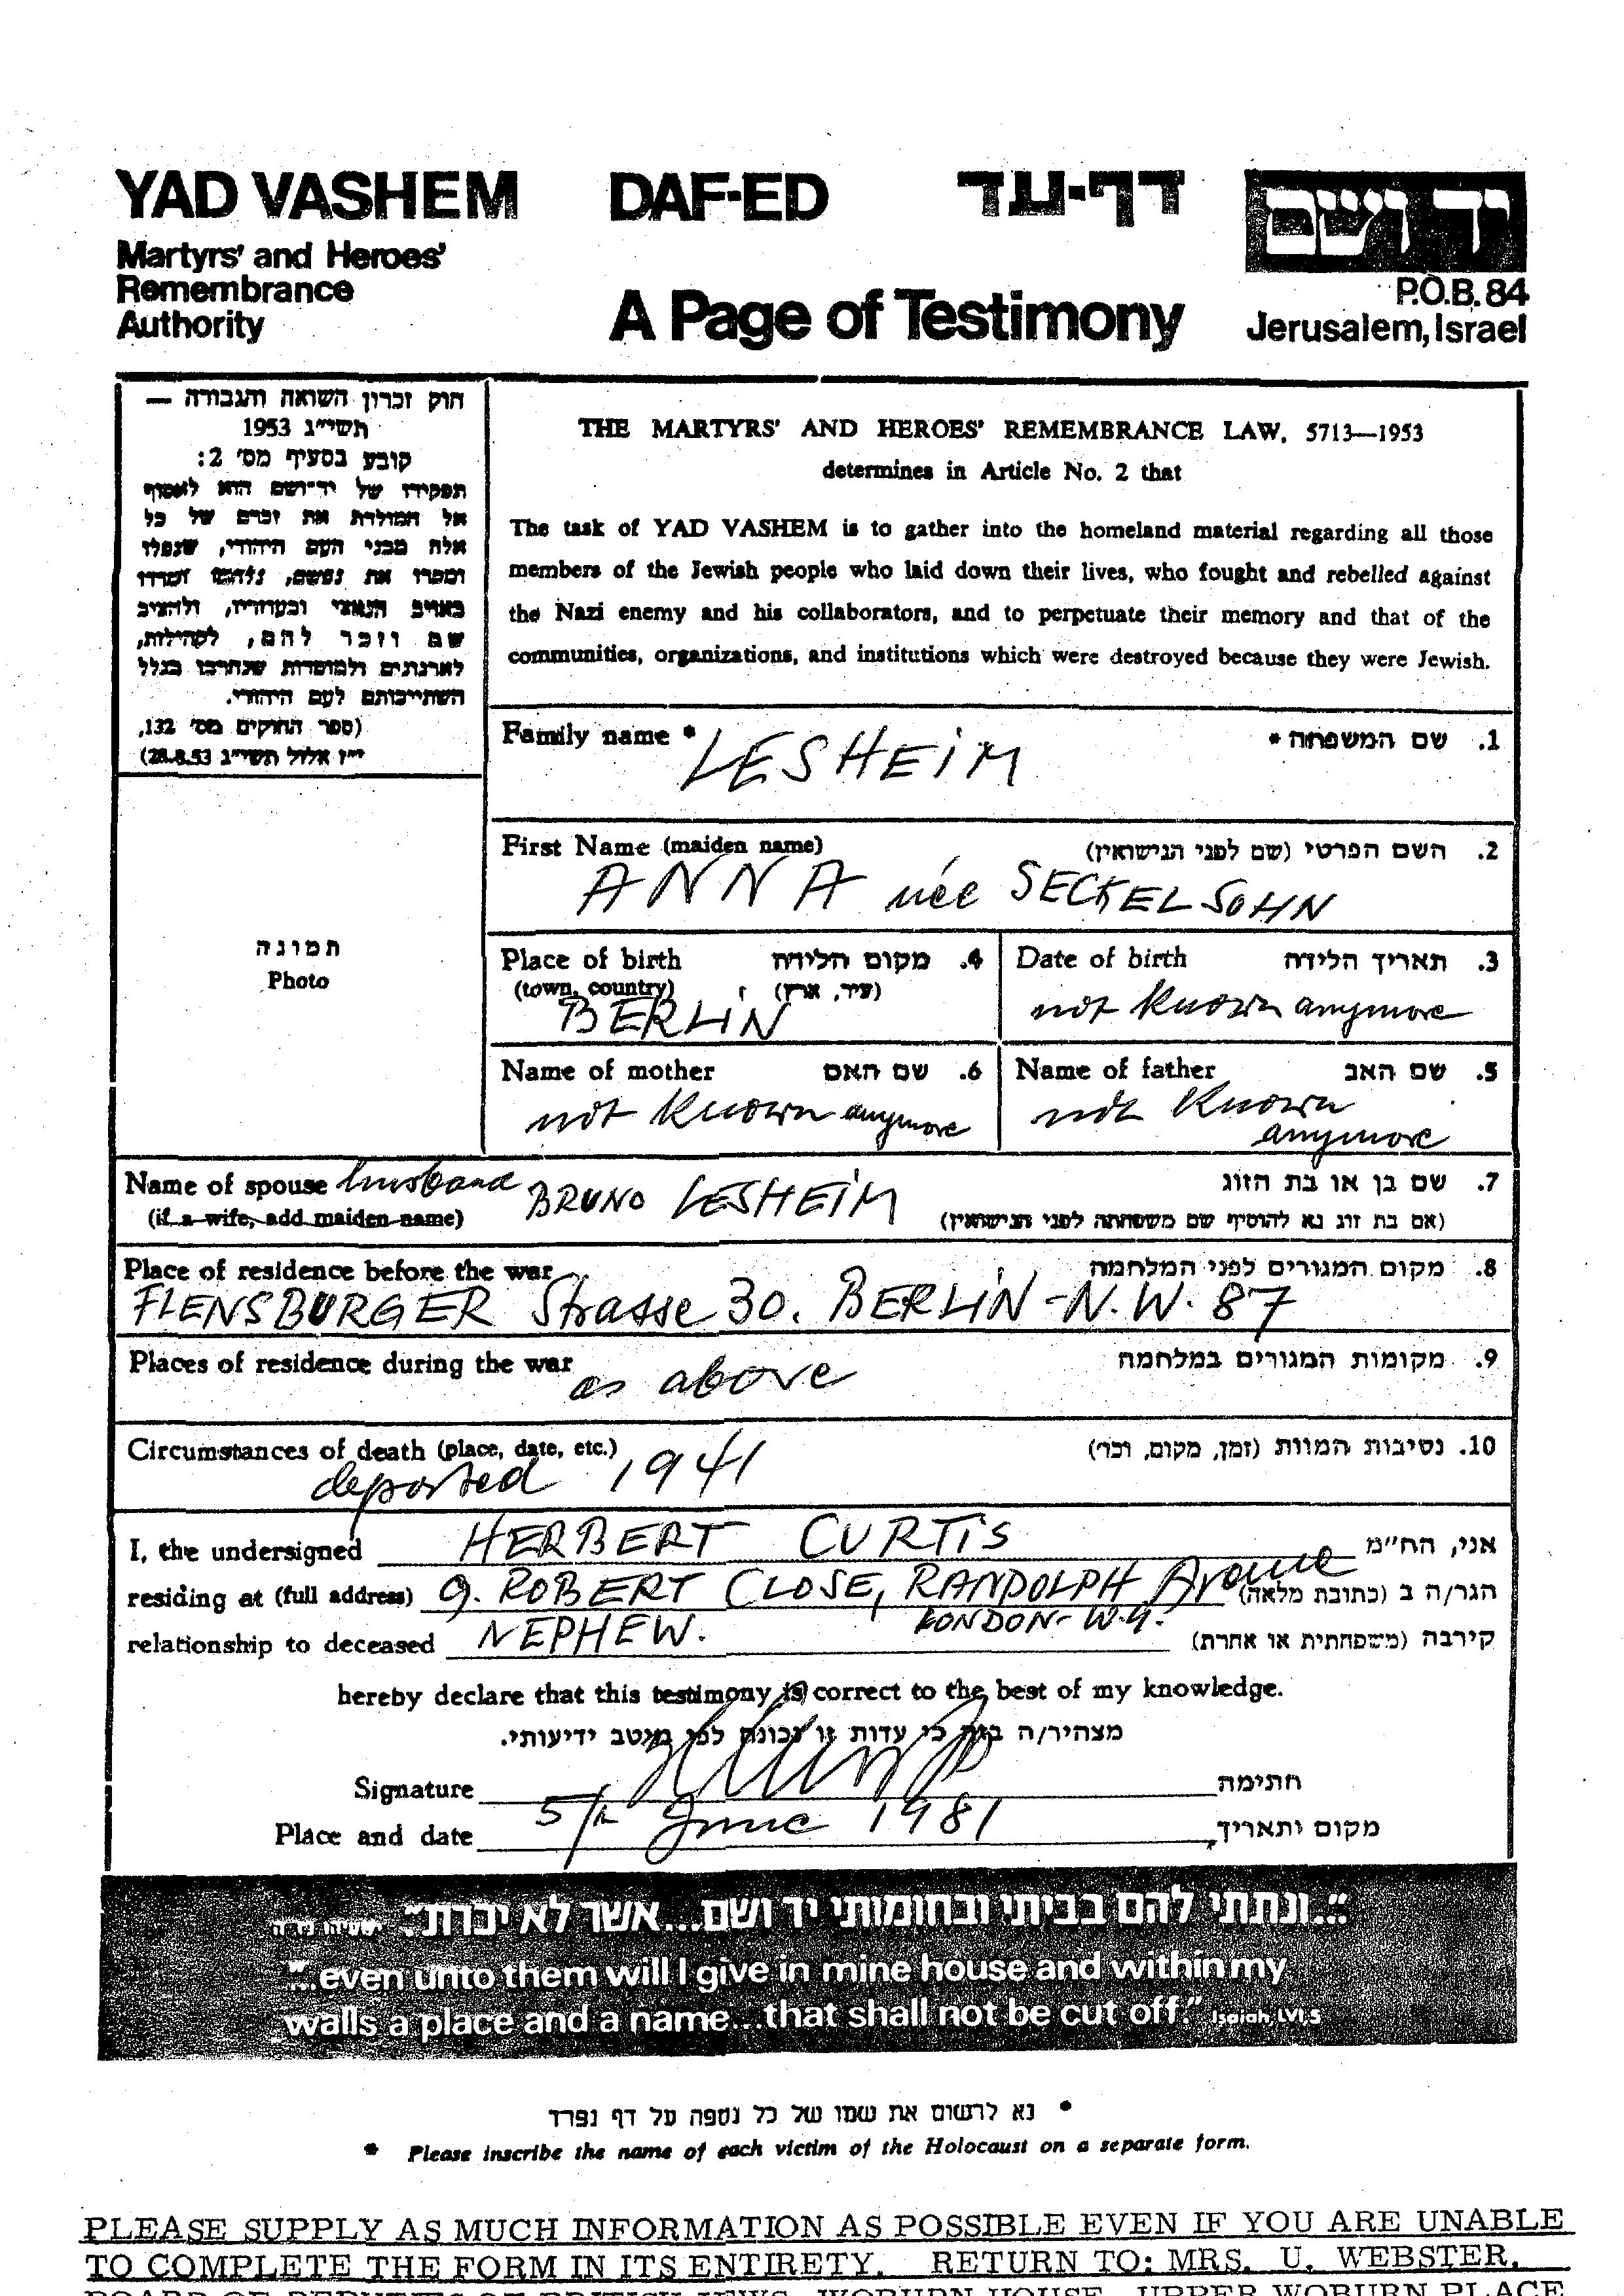 YAD VASHEM DAF-ED דף-עד יד ושם
Martyrs' and Heroes'
Remembrance
Authority
A Page of Testimony
P.O.B. 84
Jerusalem, Israel
חוק זכרון השואה והגבורה —
תשי״ג 1953
קובע בסעיף מס' 2:
תפקידו של יד־ושם הוא לאסוף
אל המולדת את זכרם של כל
אלה מבני העם היהודי, שנפלו
ומסרו את נפשם, נלחמו ומרדו
באויב הנאצי ובעוזריו, ולהציב
שם וזכר להם, לקהילות,
לארגונים ולמוסדות שנחרבו בגלל
השתייכותם לעם היהודי.
(ספר החוקים מס' 132,
י״ז אלול תשי״ג 28.8.53)
THE MARTYRS' AND HEROES' REMEMBRANCE LAW, 5713—1953
determines in Article No. 2 that
The task of YAD VASHEM is to gather into the homeland material regarding all those
members of the Jewish people who laid down their lives, who fought and rebelled against
the Nazi enemy and his collaborators, and to perpetuate their memory and that of the
communities, organizations, and institutions which were destroyed because they were Jewish.
Family name * LESHEIM 1. שם המשפחה *
First Name (maiden name) 2. השם הפרטי (שם לפני הנישואין)
ANNA née SECKELSOHN
תמונה
Photo
Place of birth 4. מקום הלידה
(town, country) (עיר, ארץ)
BERLIN
Date of birth 3. תאריך הלידה
not known anymore
Name of mother 6. שם האם
not known anymore
Name of father 5. שם האב
not known
anymore
Name of spouse husband BRUNO LESHEIM 7. שם בן או בת הזוג
(if a wife, add maiden name) (אם בת זוג נא להוסיף שם משפחתה לפני הנישואין)
Place of residence before the war 8. מקום המגורים לפני המלחמה
FLENSBURGER Strasse 30. BERLIN-N.W. 87
Places of residence during the war 9. מקומות המגורים במלחמה
as above
Circumstances of death (place, date, etc.) 10. נסיבות המוות (זמן, מקום, וכו')
deported 1941
I, the undersigned HERBERT CURTIS אני, הח״מ
residing at (full address) 9. ROBERT CLOSE, RANDOLPH Avenue הגר/ה ב (כתובת מלאה)
LONDON- W.9.
relationship to deceased NEPHEW. קירבה (משפחתית או אחרת)
hereby declare that this testimony is correct to the best of my knowledge.
מצהיר/ה בזה כי עדות זו נכונה לפי מיטב ידיעותי.
Signature חתימה
Place and date 5th June 1981 מקום ותאריך
"...ונתתי להם בביתי ובחומותי יד ושם...אשר לא יכרת." ישעיהו נו ה
"...even unto them will I give in mine house and within my
walls a place and a name...that shall not be cut off." Isaiah, LVI,5
* נא לרשום את שמו של כל נספה על דף נפרד
* Please inscribe the name of each victim of the Holocaust on a separate form.
PLEASE SUPPLY AS MUCH INFORMATION AS POSSIBLE EVEN IF YOU ARE UNABLE
TO COMPLETE THE FORM IN ITS ENTIRETY. RETURN TO: MRS. U. WEBSTER,
BOARD OF DEPUTIES OF BRITISH JEWS, WOBURN HOUSE, UPPER WOBURN PLACE